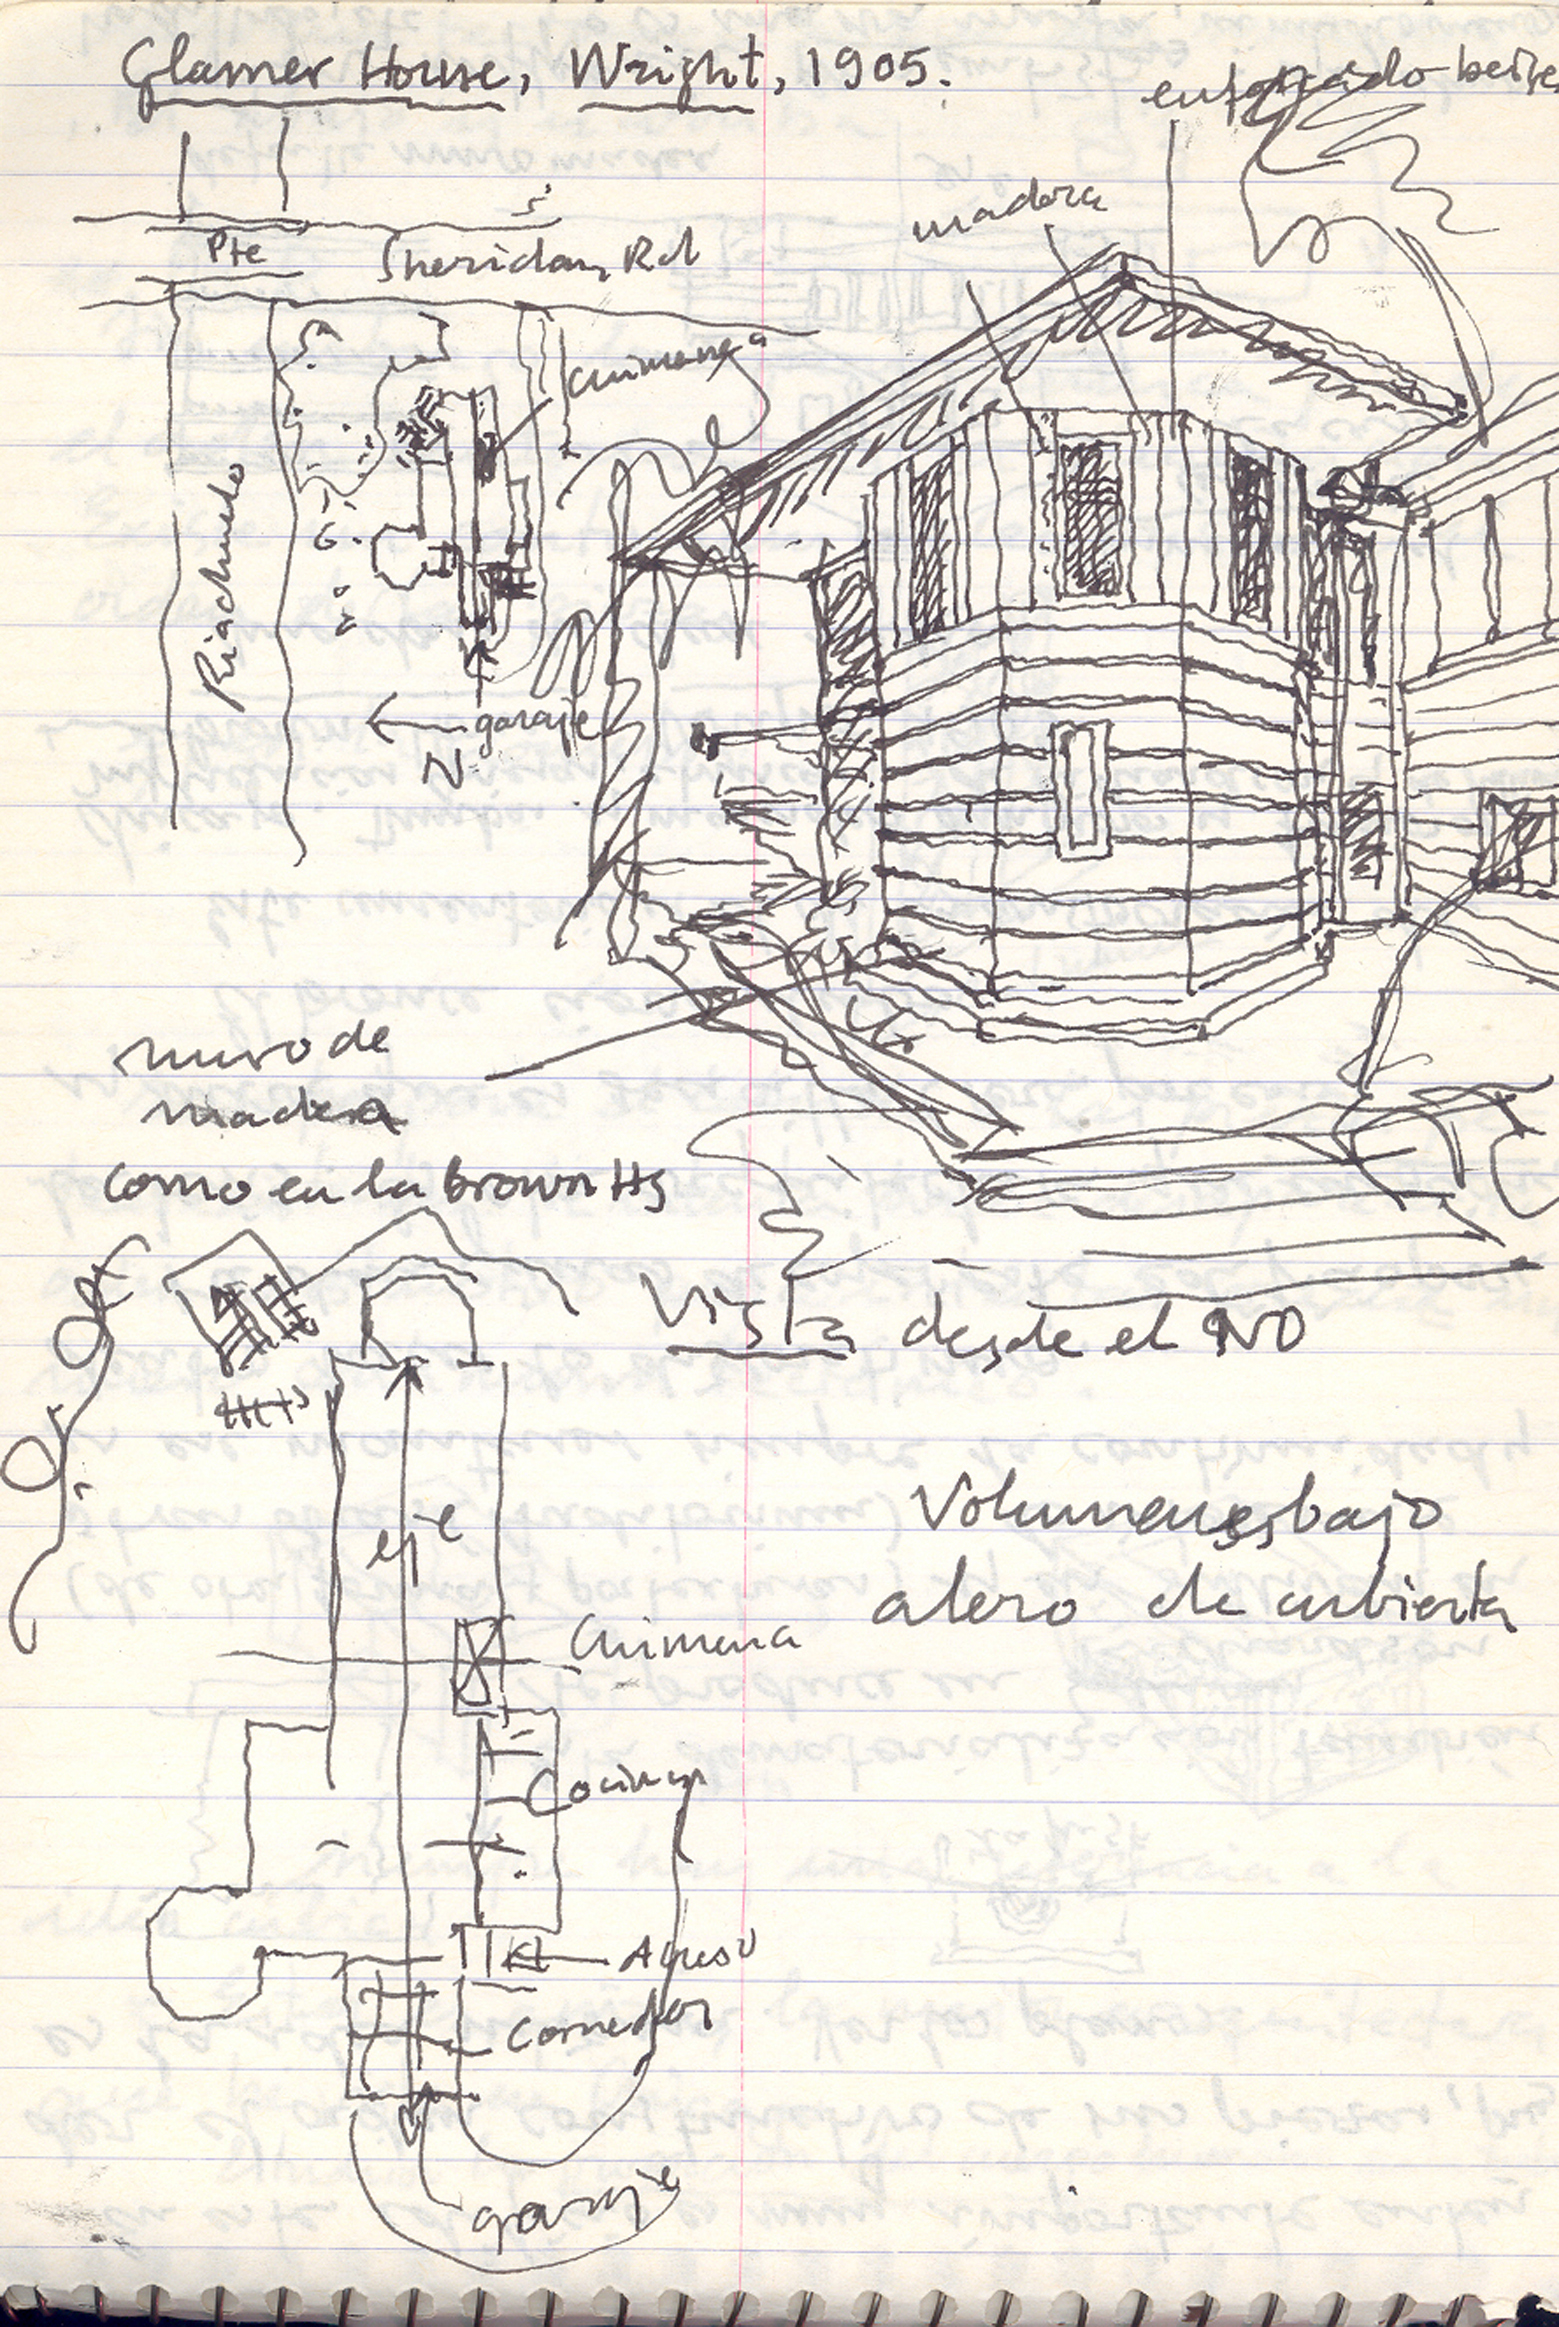 Glasner House, Wright, 1905.
enfoscado beige
madera
Pte
Sheridan Rd
chimenea
Riachuelo
garaje
N
muro de
madera
como en la brown Hs
Vista desde el NO
eje
Volumenes bajo
alero de cubierta
Chimena
Cocina
Acceso
Comedor
garaje